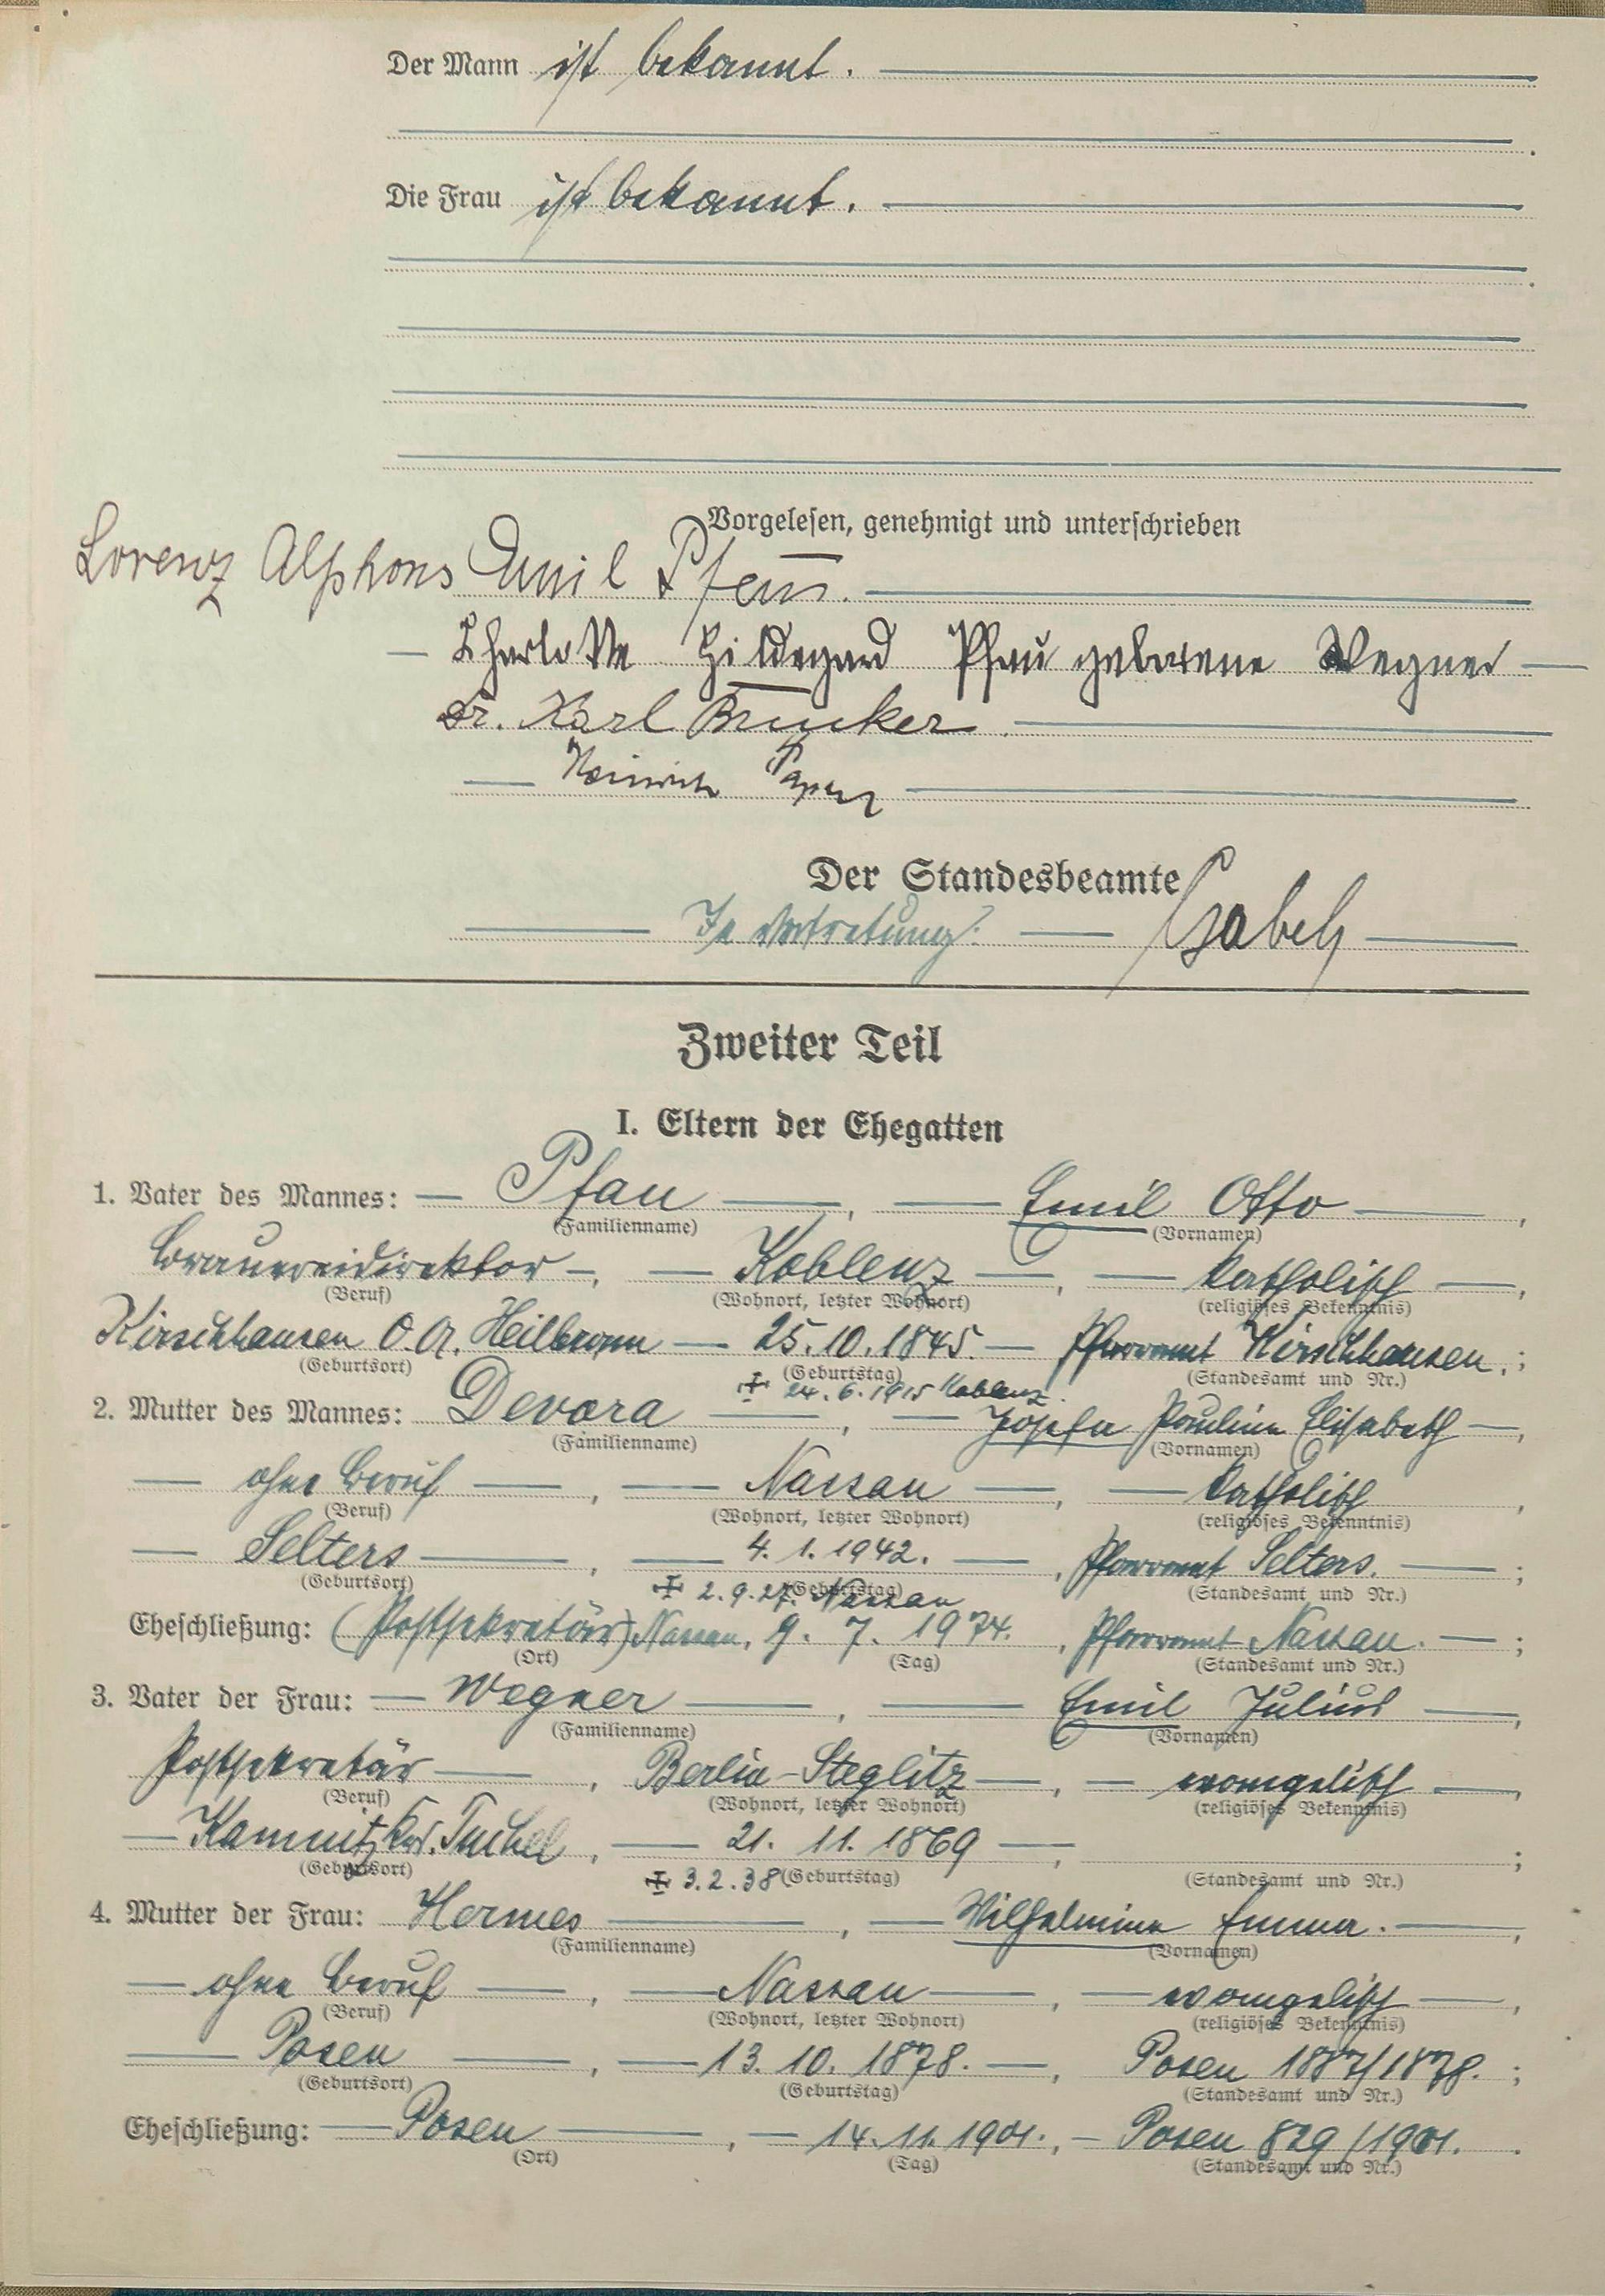 Der Mann ist bekannt.
Die Frau ist bekannt.
Vorgelesen, genehmigt und unterschrieben
Lorenz Alphons Emil Pfau.
Charlotte Hildegard Pfau geborene Wegner
Dr. Karl Brucker
Heinrich
Der Standesbeamte
In Vertretung: Gabel
Zweiter Teil
I. Eltern der Ehegatten
1. Vater des Mannes: Pfau, Emil Otto,
(Familienname) (Vornamen)
Brauereidirektor, Koblenz, katholisch,
(Beruf) (Wohnort, letzter Wohnort) (religiöses Bekenntnis)
Kirschhausen O.A. Heilbronn 25.10.1845. Pfarramt Kirschhausen.;
(Geburtsort) (Geburtstag) (Standesamt und Nr.)
‡ 24.6.1915 Koblenz.
2. Mutter des Mannes: Devora, Josefa Pauline Elisabeth,
(Familienname) (Vornamen)
ohne Beruf, Nassau, katholisch,
(Beruf) (Wohnort, letzter Wohnort) (religiöses Bekenntnis)
Selters, 4. 1. 1942., Pfarramt Selters.;
(Geburtsort) (Geburtstag) (Standesamt und Nr.)
‡ 2.9.27. Nassau
Eheschließung: (Postsekretär) Nassau, 9. 7. 1974., Pfarramt Nassau.;
(Ort) (Tag) (Standesamt und Nr.)
3. Vater der Frau: Wegner, Emil Julius,
(Familienname) (Vornamen)
Postsekretär, Berlin-Steglitz, evangelisch,
(Beruf) (Wohnort, letzter Wohnort) (religiöses Bekenntnis)
Kamnitz Krs. Tuchel, 21. 11. 1869, ;
(Geburtsort) ‡ 3.2.38 (Geburtstag) (Standesamt und Nr.)
4. Mutter der Frau: Hermes, Wilhelmine Emma.,
(Familienname) (Vornamen)
ohne Beruf, Nassau, evangelisch,
(Beruf) (Wohnort, letzter Wohnort) (religiöses Bekenntnis)
Posen, 13. 10. 1878., Posen 1887/1878.;
(Geburtsort) (Geburtstag) (Standesamt und Nr.)
Eheschließung: Posen, 14.11.1901., Posen 829/1901..
(Ort) (Tag) (Standesamt und Nr.)